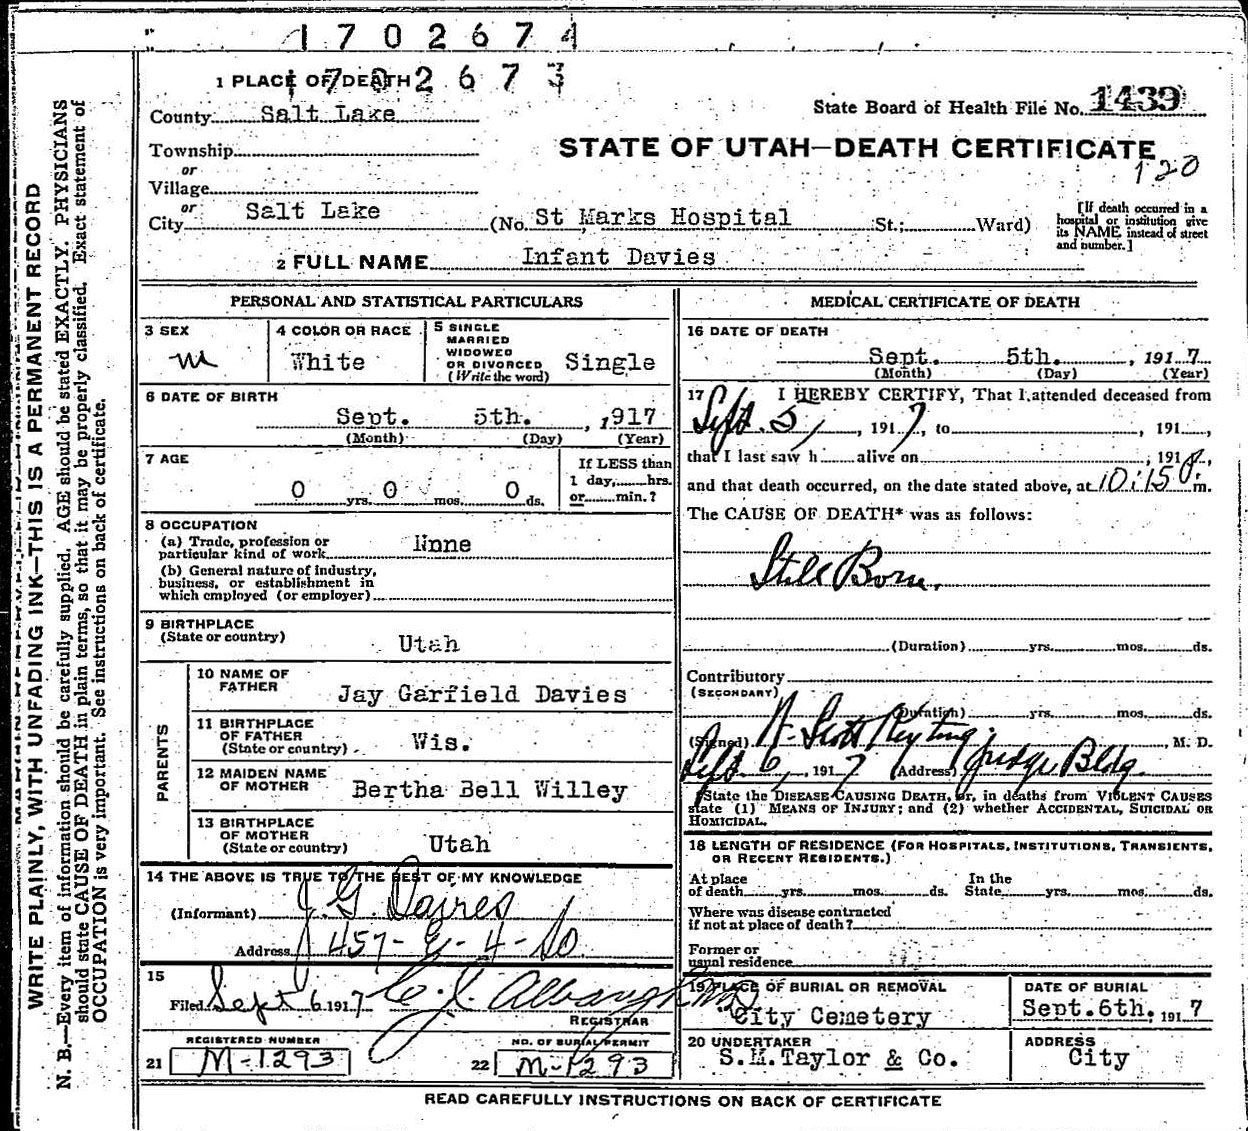 1702674
1 PLACE OF DEATH 1702673
County Salt Lake
State Board of Health File No. 1439
Township
or
Village
or
City Salt Lake
STATE OF UTAH—DEATH CERTIFICATE
120
(No. St Marks Hospital St.; Ward)
[If death occurred in a
hospital or institution give
its NAME instead of street
and number.]
2 FULL NAME Infant Davies
PERSONAL AND STATISTICAL PARTICULARS
3 SEX
m
4 COLOR OR RACE
White
5 SINGLE
MARRIED
WIDOWED
OR DIVORCED
(Write the word)
Single
6 DATE OF BIRTH
Sept. 5th. , 1917
(Month) (Day) (Year)
7 AGE
0 yrs. 0 mos. 0 ds.
If LESS than
1 day, hrs.
or min.?
8 OCCUPATION
(a) Trade, profession or
particular kind of work Nnne
(b) General nature of industry,
business, or establishment in
which employed (or employer)
9 BIRTHPLACE
(State or country)
Utah
PARENTS
10 NAME OF
FATHER
Jay Garfield Davies
11 BIRTHPLACE
OF FATHER
(State or country)
Wis.
12 MAIDEN NAME
OF MOTHER
Bertha Bell Willey
13 BIRTHPLACE
OF MOTHER
(State or country)
Utah
14 THE ABOVE IS TRUE TO THE BEST OF MY KNOWLEDGE
(Informant) J. G. Davies
Address 457-E-4-So
15
Filed Sept 6 1917
REGISTRAR
REGISTERED NUMBER
21 M-1293
NO. OF BURIAL PERMIT
22 M-1293
MEDICAL CERTIFICATE OF DEATH
16 DATE OF DEATH
Sept. 5th. , 1917
(Month) (Day) (Year)
17 I HEREBY CERTIFY, That I attended deceased from
Sept. 5, , 1917, to , 191 ,
that I last saw h alive on , 191 ,
and that death occurred, on the date stated above, at 10:15 P. m.
The CAUSE OF DEATH* was as follows:
Still Born.
(Duration) yrs. mos. ds.
Contributory
(SECONDARY)
(Duration) yrs. mos. ds.
(Signed) H. Scott Keyting , M. D.
Sept. 6, , 1917 (Address) Judge Bldg.
*State the DISEASE CAUSING DEATH, or, in deaths from VIOLENT CAUSES
state (1) MEANS OF INJURY; and (2) whether ACCIDENTAL, SUICIDAL OR
HOMICIDAL.
18 LENGTH OF RESIDENCE (FOR HOSPITALS, INSTITUTIONS, TRANSIENTS,
OR RECENT RESIDENTS.)
At place
of death yrs. mos. ds.
In the
State yrs. mos. ds.
Where was disease contracted
if not at place of death?
Former or
usual residence
19 PLACE OF BURIAL OR REMOVAL
City Cemetery
DATE OF BURIAL
Sept.6th. 1917
20 UNDERTAKER
S.M.Taylor & Co.
ADDRESS
City
READ CAREFULLY INSTRUCTIONS ON BACK OF CERTIFICATE
WRITE PLAINLY, WITH UNFADING INK—THIS IS A PERMANENT RECORD
N. B.—Every item of information should be carefully supplied. AGE should be stated EXACTLY. PHYSICIANS
should state CAUSE OF DEATH in plain terms, so that it may be properly classified. Exact statement of
OCCUPATION is very important. See instructions on back of certificate.